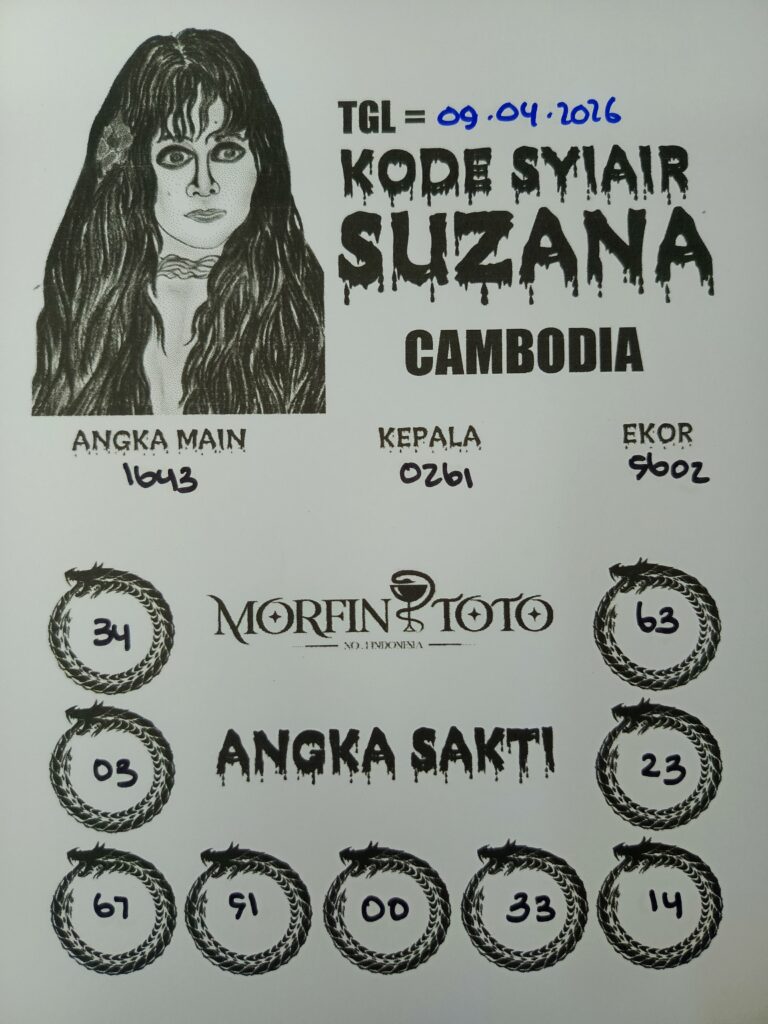 TGL = 09.04.2026
KODE SYIAIR
SUZANA
CAMBODIA
ANGKA MAIN KEPALA EKOR
1643 0261 9602
34 MORFIN TOTO 63
NO.1 INDONESIA
03 ANGKA SAKTI 23
67 91 00 33 14